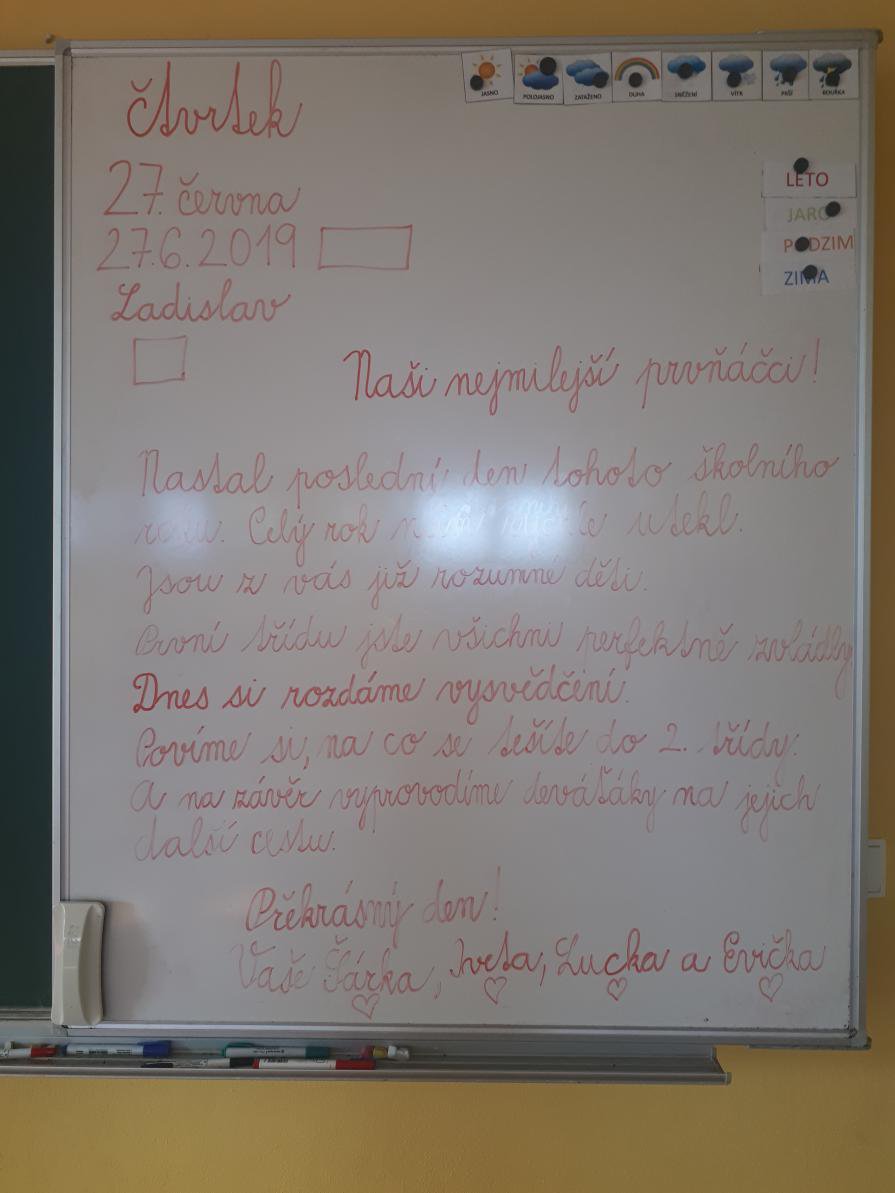 JASNO POLOJASNO ZATAŽENO DUHA SNĚŽENÍ VÍTR PRŠÍ BOUŘKA
Čtvrtek
27. června
27.6.2019
Ladislav
LÉTO
JARO
PODZIM
ZIMA
Naši nejmilejší prvňáčci!
Nastal poslední den tohoto školního
roku. Celý rok utekl.
Jsou z vás již rozumné děti.
První třídu jste všichni perfektně zvládly
Dnes si rozdáme vysvědčení.
Povíme si, na co se těšíte do 2. třídy.
A na závěr vyprovodíme deváťáky na jejich
další cestu.
Překrásný den!
Vaše Šárka, Iveta, Lucka a Evička